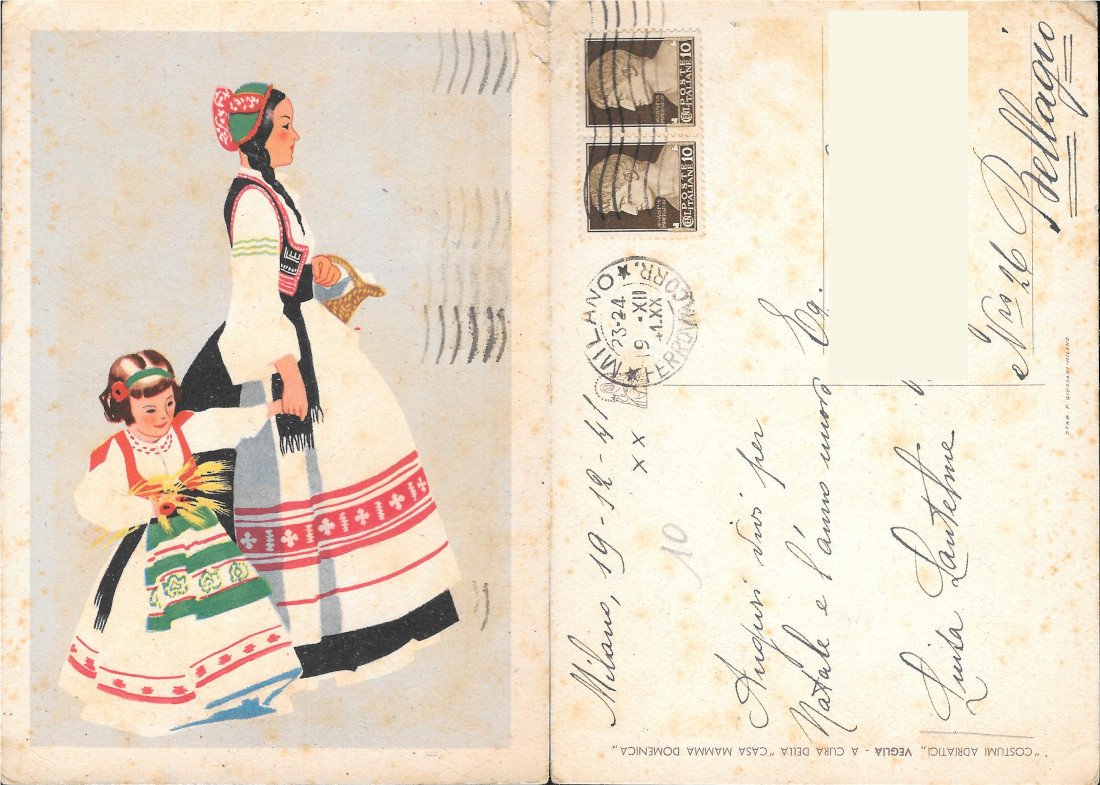 POSTE
ITALIANE
10
POSTE
ITALIANE
10
MILANO
23-24
19 - XII
41.XX
FERROVIA CORR.
Milano, 19-12-41
XX
10
Auguri vivi per
Natale e l'anno nuovo
Luisa Lantelme
Eg.
26
Bellagio
"COSTUMI ADRIATICI„ VEGLIA - A CURA DELLA "CASA MAMMA DOMENICA„
GIUSSANI-MILANO